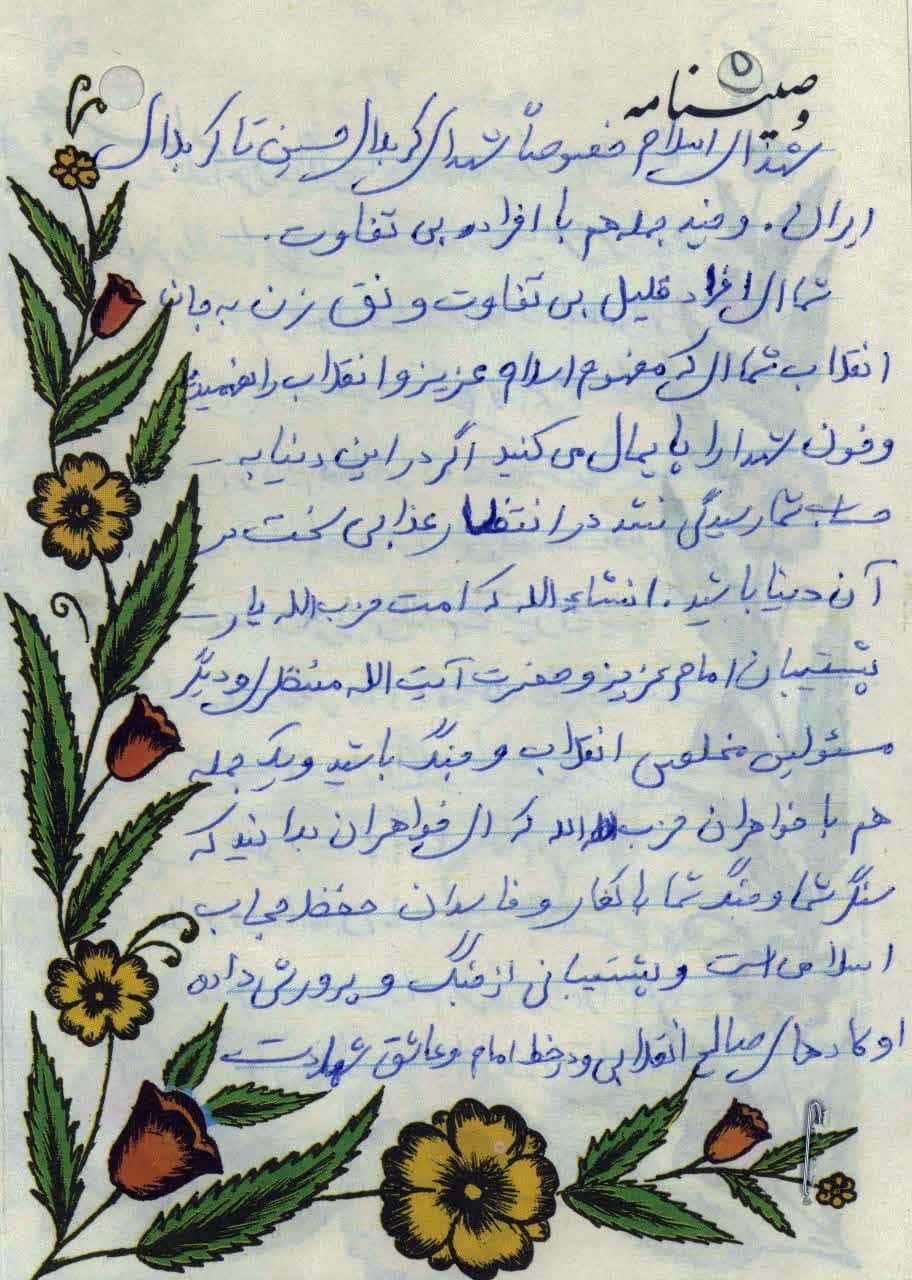 ۵
وصیتنامه
شهدای اسلام خصوصاً شهدای کربلای حسین تا کربلای
ایران. و چند جمله هم با افراد بی تفاوت.
شما ای افراد قلیل بی تفاوت و نق زن به جان
انقلاب شما ای که مفهوم اسلام عزیز و انقلاب را نفهمیدید
و خون شهدا را پایمال می کنید اگر در این دنیا به
حساب شما رسیدگی نشد در انتظار عذابی سخت در
آن دنیا باشید. انشاءالله که امت حزب الله یار
پشتیبان امام عزیز و حضرت آیت الله منتظری و دیگر
مسئولین مخلص انقلاب و جنگ باشید و یک جمله
هم با خواهران حزب الله که ای خواهران بدانید که
سنگر شما و جنگ شما با کفار و فاسدان حفظ حجاب
اسلامی است و پشتیبانی از جنگ و پرورش داده
او کادرهای صالح انقلابی و در خط امام و عاشق شهادت